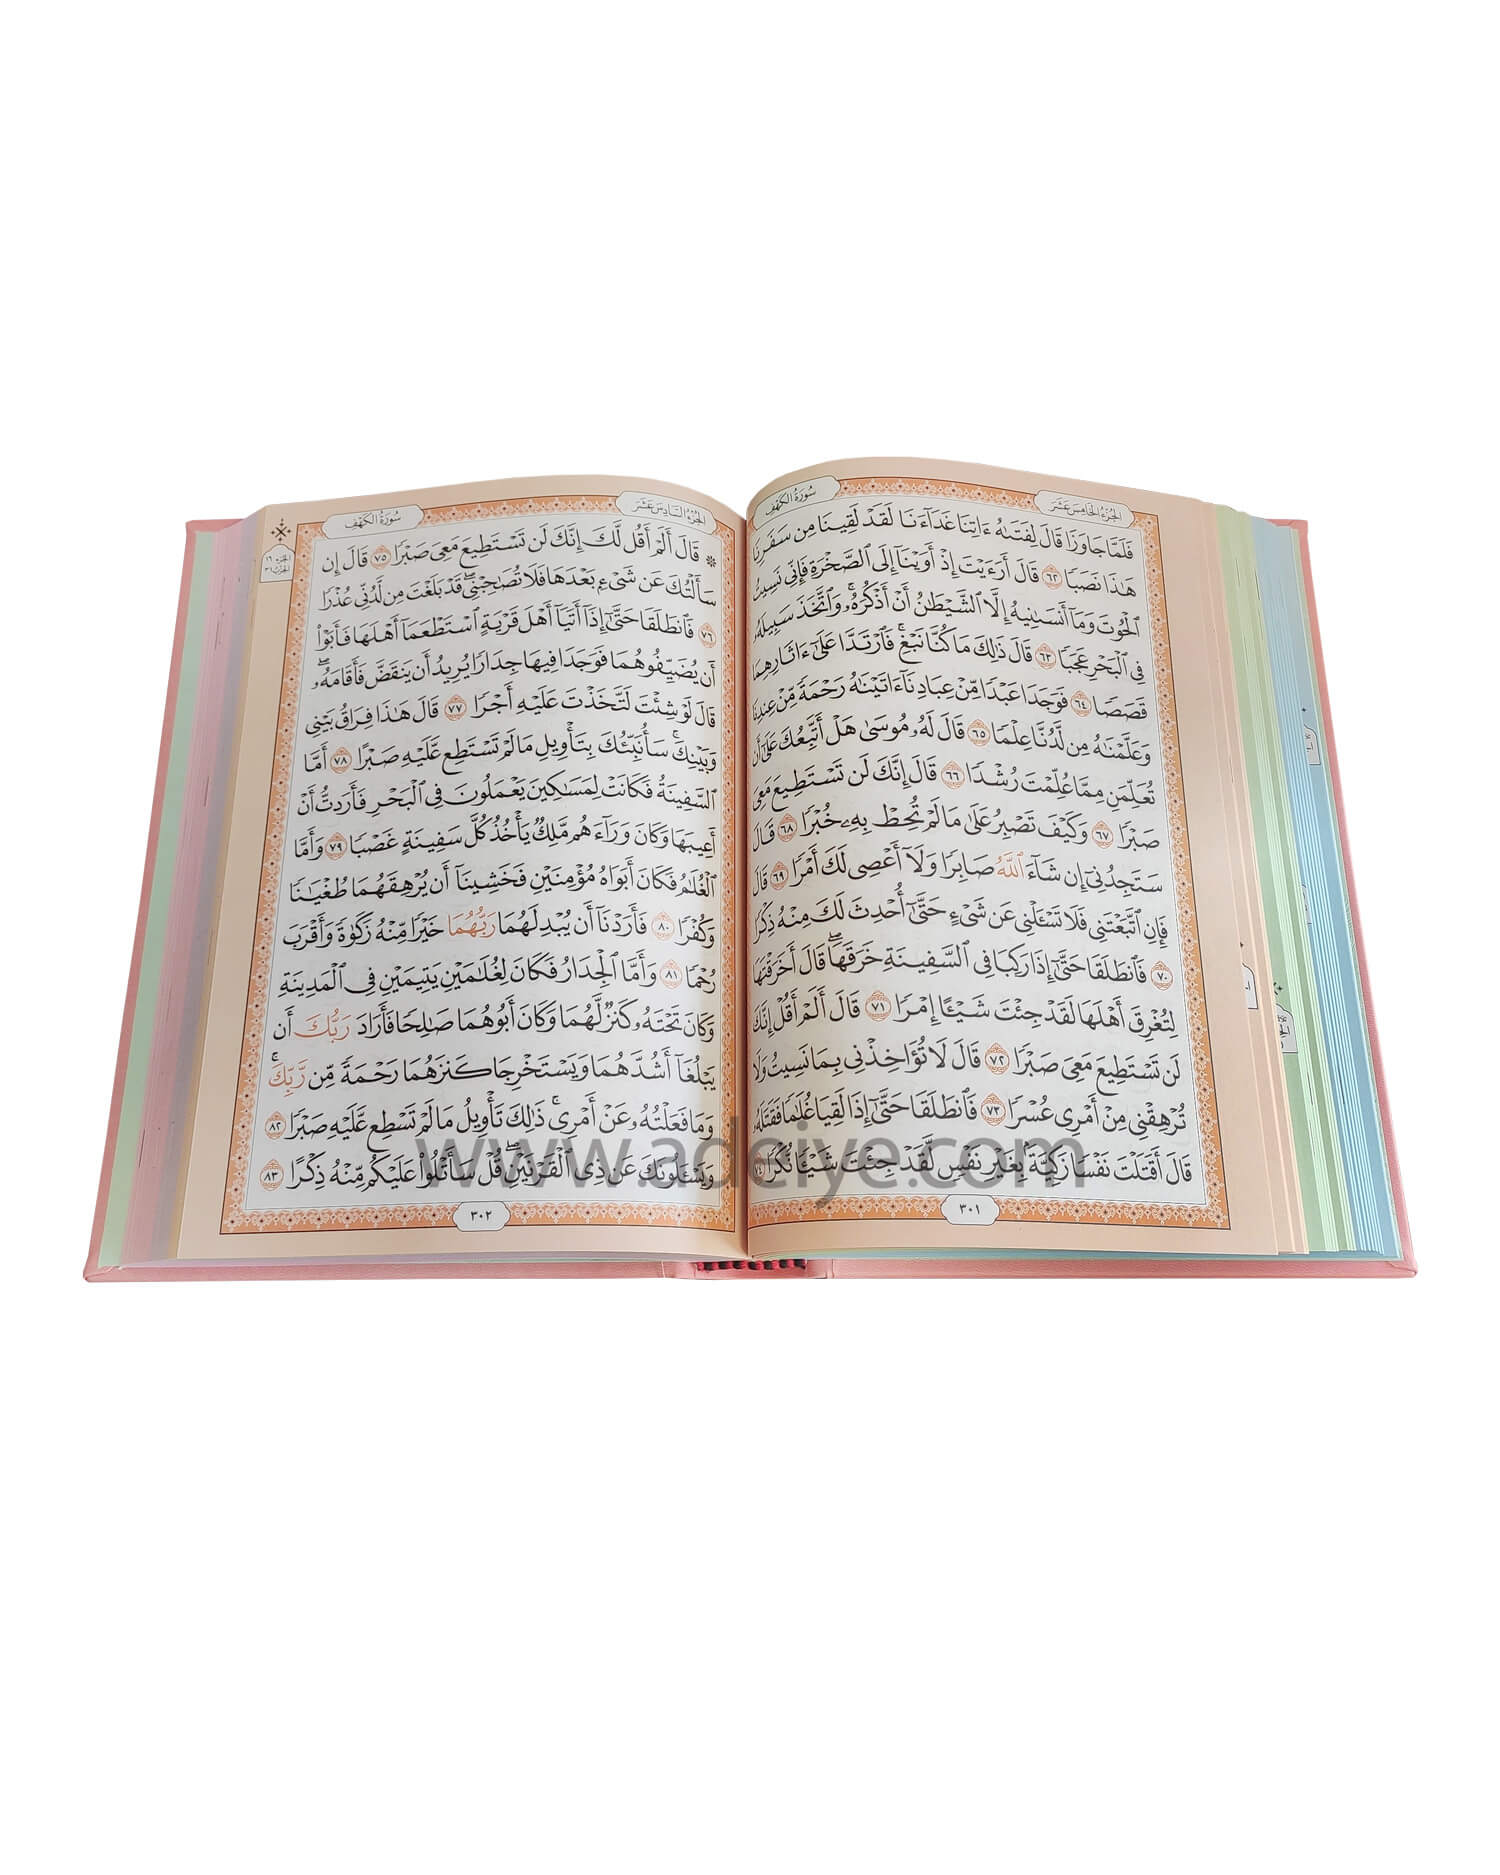 سُورَةُ الكَهْفِ
الجُزءُ الخَامِسَ عَشَرَ
فَلَمَّا جَاوَزَا قَالَ لِفَتَىٰهُ ءَاتِنَا غَدَآءَنَا لَقَدْ لَقِينَا مِن سَفَرِنَا
هَٰذَا نَصَبًا ٦٢ قَالَ أَرَءَيْتَ إِذْ أَوَيْنَآ إِلَى ٱلصَّخْرَةِ فَإِنِّي نَسِيتُ
ٱلْحُوتَ وَمَآ أَنسَىٰنِيهُ إِلَّا ٱلشَّيْطَٰنُ أَنْ أَذْكُرَهُۥۚ وَٱتَّخَذَ سَبِيلَهُۥ
فِي ٱلْبَحْرِ عَجَبًا ٦٣ قَالَ ذَٰلِكَ مَا كُنَّا نَبْغِۚ فَٱرْتَدَّا عَلَىٰٓ ءَاثَارِهِمَا
قَصَصًا ٦٤ فَوَجَدَا عَبْدًا مِّنْ عِبَادِنَآ ءَاتَيْنَٰهُ رَحْمَةً مِّنْ عِندِنَا
وَعَلَّمْنَٰهُ مِن لَّدُنَّا عِلْمًا ٦٥ قَالَ لَهُۥ مُوسَىٰ هَلْ أَتَّبِعُكَ عَلَىٰٓ أَن
تُعَلِّمَنِ مِمَّا عُلِّمْتَ رُشْدًا ٦٦ قَالَ إِنَّكَ لَن تَسْتَطِيعَ مَعِيَ
صَبْرًا ٦٧ وَكَيْفَ تَصْبِرُ عَلَىٰ مَا لَمْ تُحِطْ بِهِۦ خُبْرًا ٦٨ قَالَ
سَتَجِدُنِيٓ إِن شَآءَ ٱللَّهُ صَابِرًا وَلَآ أَعْصِي لَكَ أَمْرًا ٦٩ قَالَ
فَإِنِ ٱتَّبَعْتَنِي فَلَا تَسْـَٔلْنِي عَن شَيْءٍ حَتَّىٰٓ أُحْدِثَ لَكَ مِنْهُ ذِكْرًا
٧٠ فَٱنطَلَقَا حَتَّىٰٓ إِذَا رَكِبَا فِي ٱلسَّفِينَةِ خَرَقَهَاۖ قَالَ أَخَرَقْتَهَا
لِتُغْرِقَ أَهْلَهَا لَقَدْ جِئْتَ شَيْـًٔا إِمْرًا ٧١ قَالَ أَلَمْ أَقُلْ إِنَّكَ
لَن تَسْتَطِيعَ مَعِيَ صَبْرًا ٧٢ قَالَ لَا تُؤَاخِذْنِي بِمَا نَسِيتُ وَلَا
تُرْهِقْنِي مِنْ أَمْرِي عُسْرًا ٧٣ فَٱنطَلَقَا حَتَّىٰٓ إِذَا لَقِيَا غُلَٰمًا فَقَتَلَهُۥ
قَالَ أَقَتَلْتَ نَفْسًا زَكِيَّةًۢ بِغَيْرِ نَفْسٍ لَّقَدْ جِئْتَ شَيْـًٔا نُّكْرًا
٣٠١
الجُزءُ السَّادِسَ عَشَرَ
سُورَةُ الكَهْفِ
الجزء ١٦
الحزب ٣١
۞ قَالَ أَلَمْ أَقُل لَّكَ إِنَّكَ لَن تَسْتَطِيعَ مَعِيَ صَبْرًا ٧٥ قَالَ إِن
سَأَلْتُكَ عَن شَيْءٍۭ بَعْدَهَا فَلَا تُصَٰحِبْنِيۖ قَدْ بَلَغْتَ مِن لَّدُنِّي عُذْرًا
٧٦ فَٱنطَلَقَا حَتَّىٰٓ إِذَآ أَتَيَآ أَهْلَ قَرْيَةٍ ٱسْتَطْعَمَآ أَهْلَهَا فَأَبَوْا۟
أَن يُضَيِّفُوهُمَا فَوَجَدَا فِيهَا جِدَارًا يُرِيدُ أَن يَنقَضَّ فَأَقَامَهُۥۖ
قَالَ لَوْ شِئْتَ لَتَّخَذْتَ عَلَيْهِ أَجْرًا ٧٧ قَالَ هَٰذَا فِرَاقُ بَيْنِي
وَبَيْنِكَۚ سَأُنَبِّئُكَ بِتَأْوِيلِ مَا لَمْ تَسْتَطِع عَّلَيْهِ صَبْرًا ٧٨ أَمَّا
ٱلسَّفِينَةُ فَكَانَتْ لِمَسَٰكِينَ يَعْمَلُونَ فِي ٱلْبَحْرِ فَأَرَدتُّ أَنْ
أَعِيبَهَا وَكَانَ وَرَآءَهُم مَّلِكٌ يَأْخُذُ كُلَّ سَفِينَةٍ غَصْبًا ٧٩ وَأَمَّا
ٱلْغُلَٰمُ فَكَانَ أَبَوَاهُ مُؤْمِنَيْنِ فَخَشِينَآ أَن يُرْهِقَهُمَا طُغْيَٰنًا
وَكُفْرًا ٨٠ فَأَرَدْنَآ أَن يُبْدِلَهُمَا رَبُّهُمَا خَيْرًا مِّنْهُ زَكَوٰةً وَأَقْرَبَ
رُحْمًا ٨١ وَأَمَّا ٱلْجِدَارُ فَكَانَ لِغُلَٰمَيْنِ يَتِيمَيْنِ فِي ٱلْمَدِينَةِ
وَكَانَ تَحْتَهُۥ كَنزٌ لَّهُمَا وَكَانَ أَبُوهُمَا صَٰلِحًا فَأَرَادَ رَبُّكَ أَن
يَبْلُغَآ أَشُدَّهُمَا وَيَسْتَخْرِجَا كَنزَهُمَا رَحْمَةً مِّن رَّبِّكَۚ
وَمَا فَعَلْتُهُۥ عَنْ أَمْرِيۚ ذَٰلِكَ تَأْوِيلُ مَا لَمْ تَسْطِع عَّلَيْهِ صَبْرًا ٨٢
وَيَسْـَٔلُونَكَ عَن ذِي ٱلْقَرْنَيْنِۖ قُلْ سَأَتْلُوا۟ عَلَيْكُم مِّنْهُ ذِكْرًا ٨٣
٣٠٢
www.adeiye.com